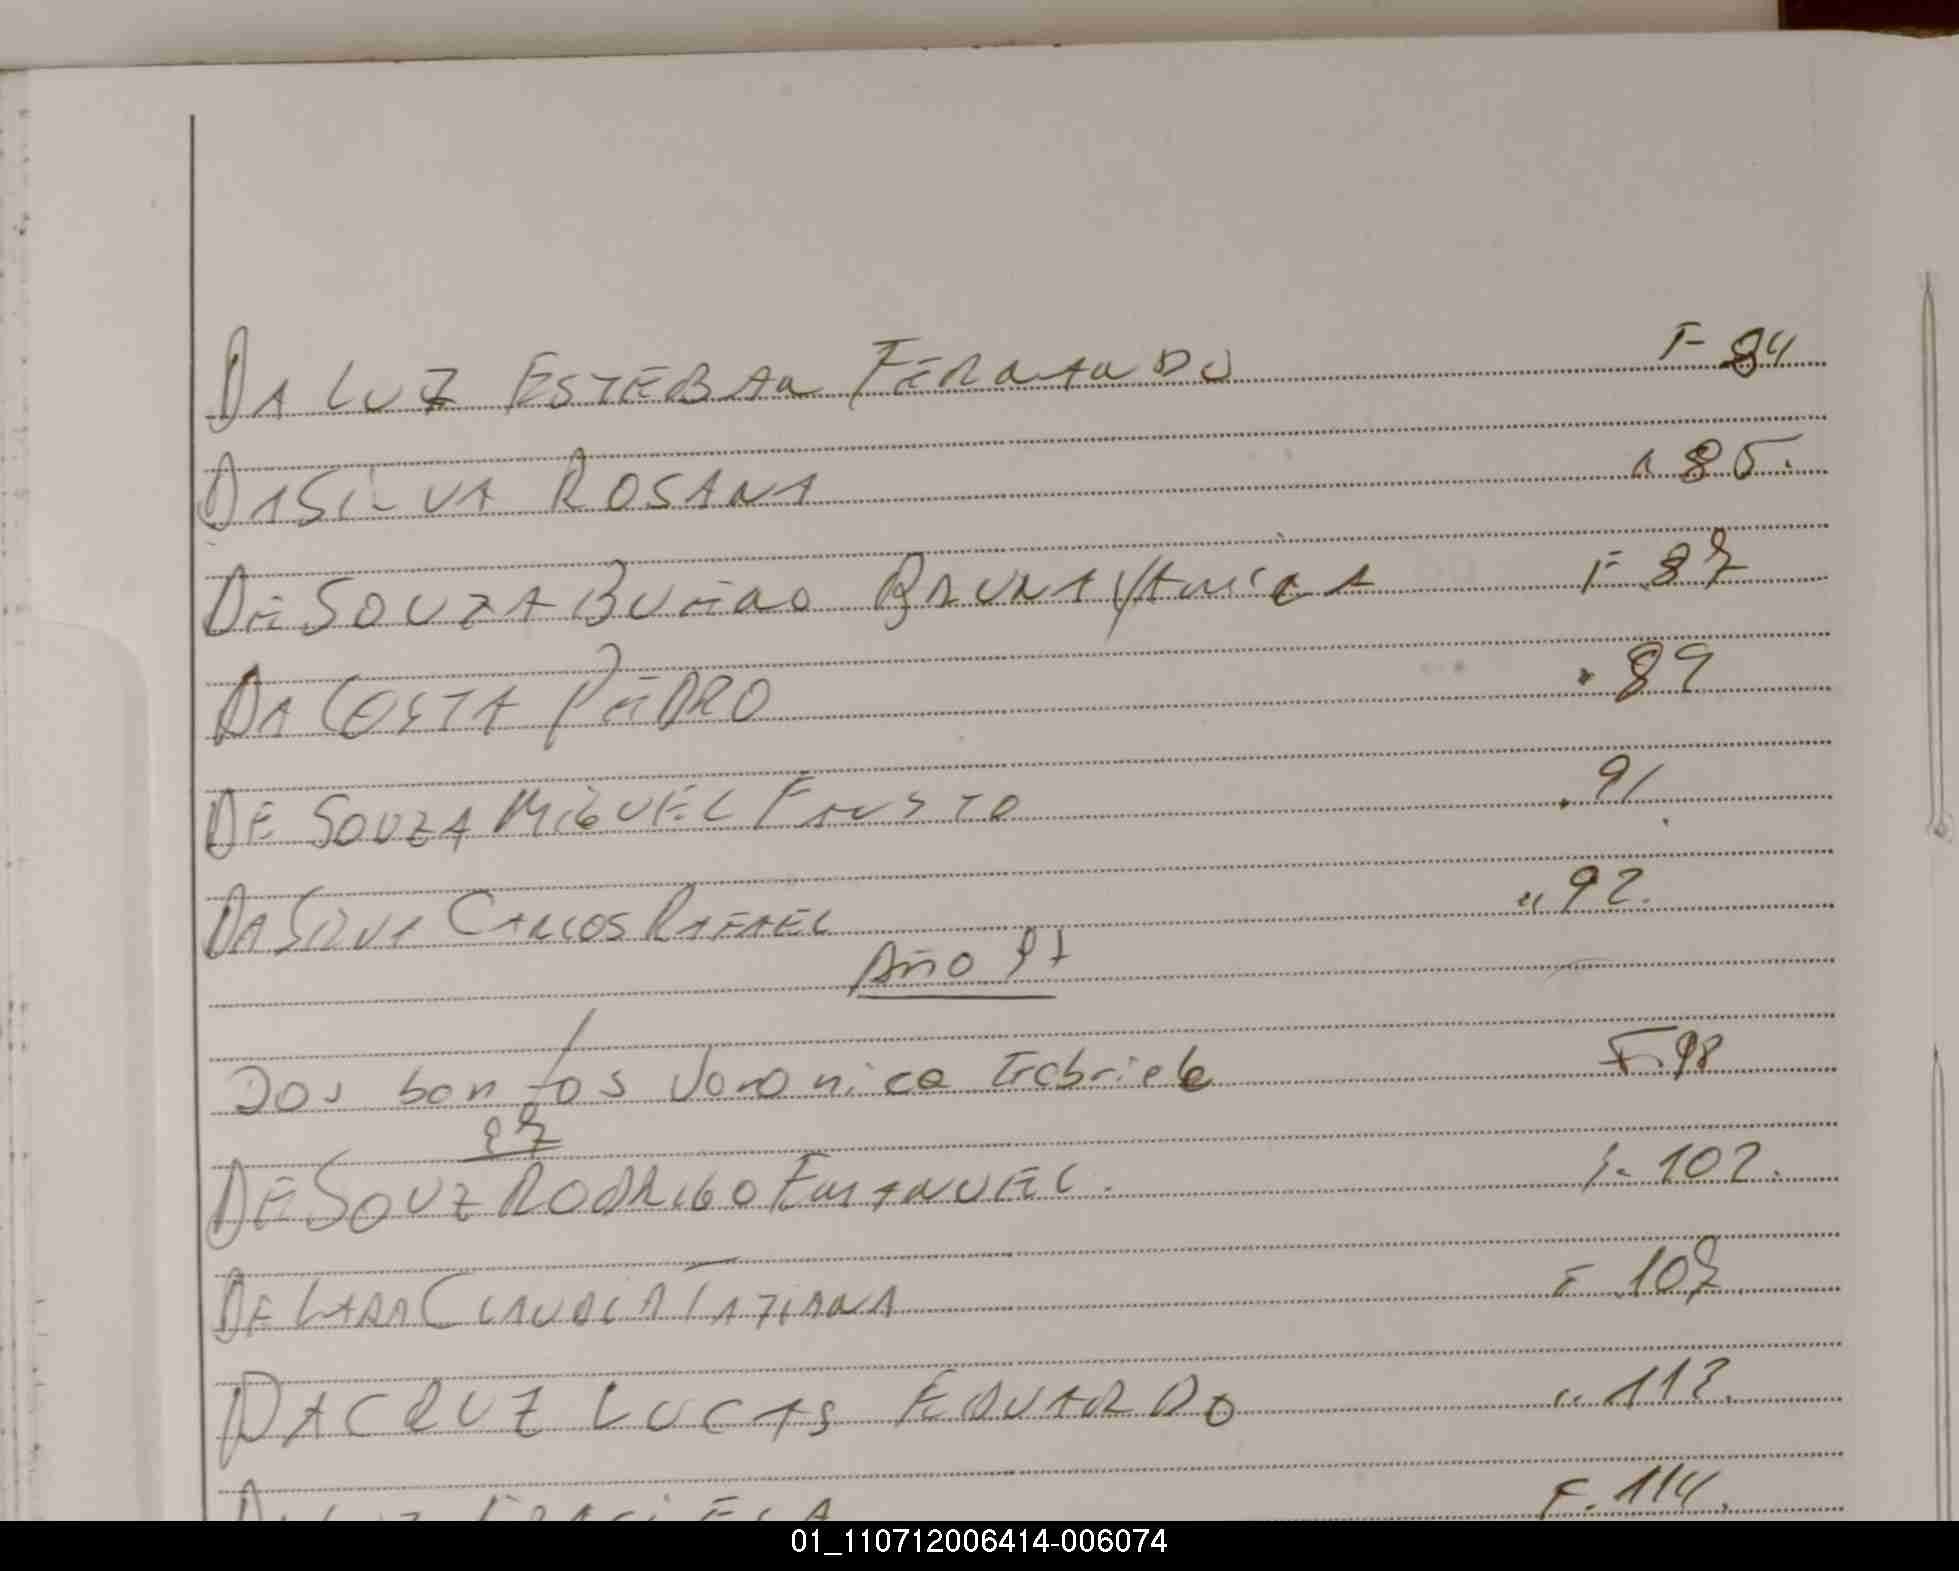 DA LUZ ESTEBAN FERNANDO F 84
DA SILVA ROSANA " 85.
DE SOUZA BUENO BRUNA YANICA F 87
DA COSTA PEDRO " 89
DE SOUZA MIGUEL FAUSTO " 91.
DA SILVA CARLOS RAFAEL " 92.
Año 97
Dos Santos Veronica Gabriela F. 98
97
DE SOUZ RODRIGO EMANUEL. F. 102.
DE LARA CLAUDIA TATIANA F. 107
DA CRUZ LUCAS EDUARDO " 112.
DA LUZ GRACIELA F. 114.
01_110712006414-006074